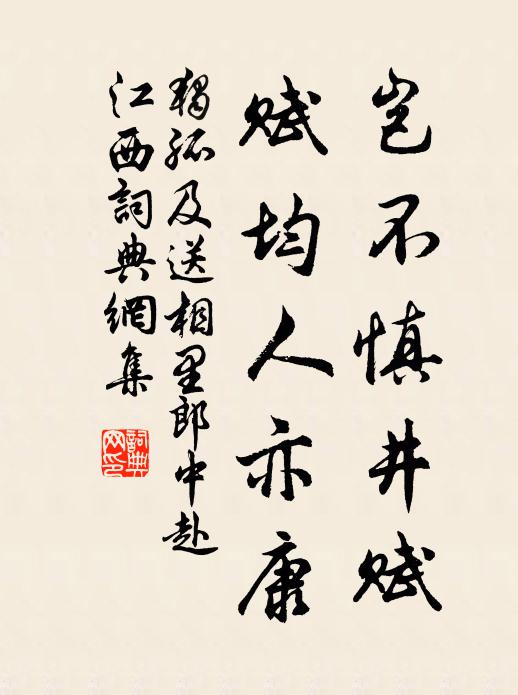 岂不慎井赋
赋均人亦康
獨孤及送相里郎中赴
江西詞典網集
詞典网印